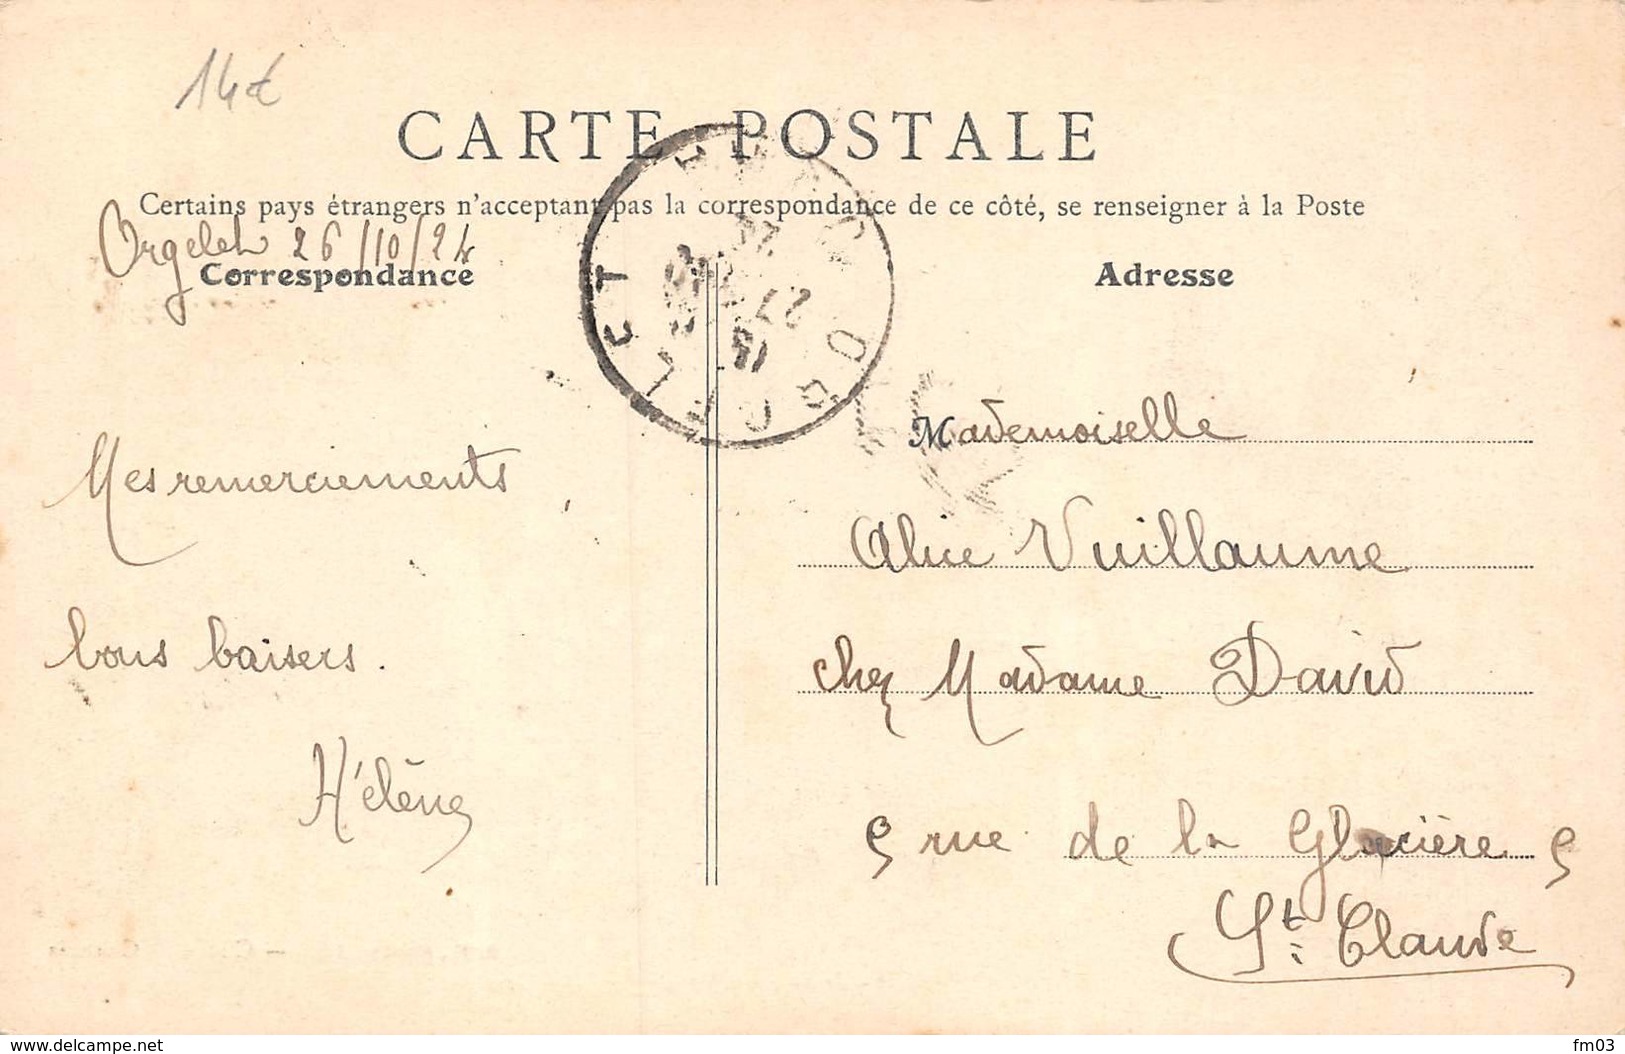 14€
CARTE POSTALE
Certains pays étrangers n'acceptant pas la correspondance de ce côté, se renseigner à la Poste
Orgelet 26/10/24
Correspondance
Adresse
ORGELET
27
Mes remerciements
bons baisers.
Hélène
Mademoiselle
Alice Vuillaume
chez Madame David
rue de la Glacière
St. Claude
www.delcampe.net
fm03